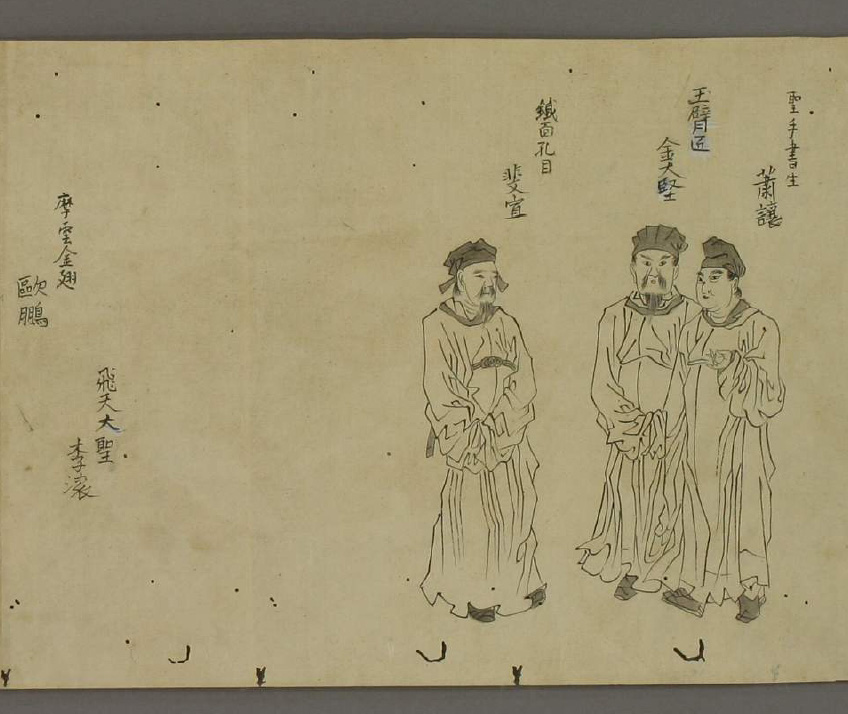 聖手書生
蕭讓
玉臂匠
金大堅
鐵面孔目
裴宣
飛天大聖
李袞
摩雲金翅
歐鵬